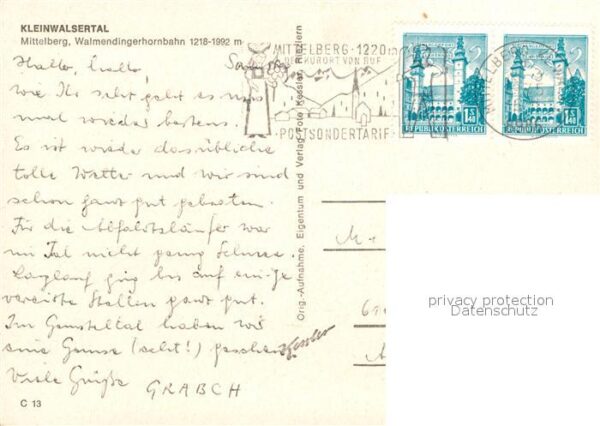 KLEINWALSERTAL
Mittelberg, Walmendingerhornbahn 1218-1992 m
Hallo, hallo,
wie Ihr seht geht es uns
mal wieder bestens.
Es ist wieder das übliche
tolle Wetter und wir sind
schon ganz gut gebraten.
Für die Abfahrtsläufer war
im Tal nicht genug Schnee.
Langlauf ging bis auf einige
vereiste Stellen ganz gut.
Im Gemsteltal haben wir
eine Gemse (echt!) gesehen.
Viele Grüße GRABSCH
C 13
Orig.-Aufnahme, Eigentum und Verlag Foto Kessler, Riezlern
Kessler
MITTELBERG-1220m
DER KURORT VON RUF
POSTSONDERTARIF
MITTELBERG
S 1.40
REPUBLIK ÖSTERREICH
S 1.40
REPUBLIK ÖSTERREICH
privacy protection
Datenschutz